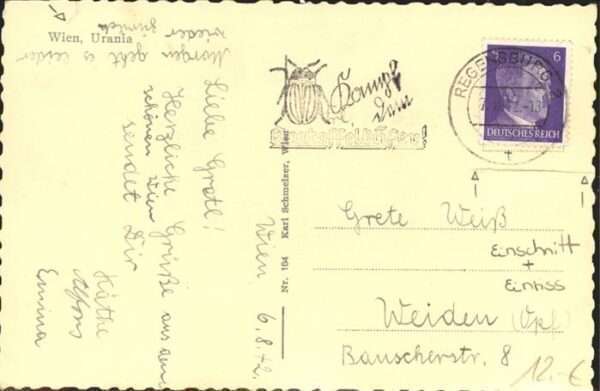 Wien, Urania
Morgen geht es leider
wieder zurück
Liebe Gretl!
Herzliche Grüße aus dem
schönen Wien
sendet Dir
Käthe
Alfons
Emma
Wien 6.8.42.
Nr. 104 Karl Schmelzer, Wien
Kampf
dem
Kartoffelkäfer!
REGENSBURG 2
6
DEUTSCHES REICH
Grete Weiß
Einschnitt
+
Weiden (Opf)
Bauscherstr. 8
12.-€